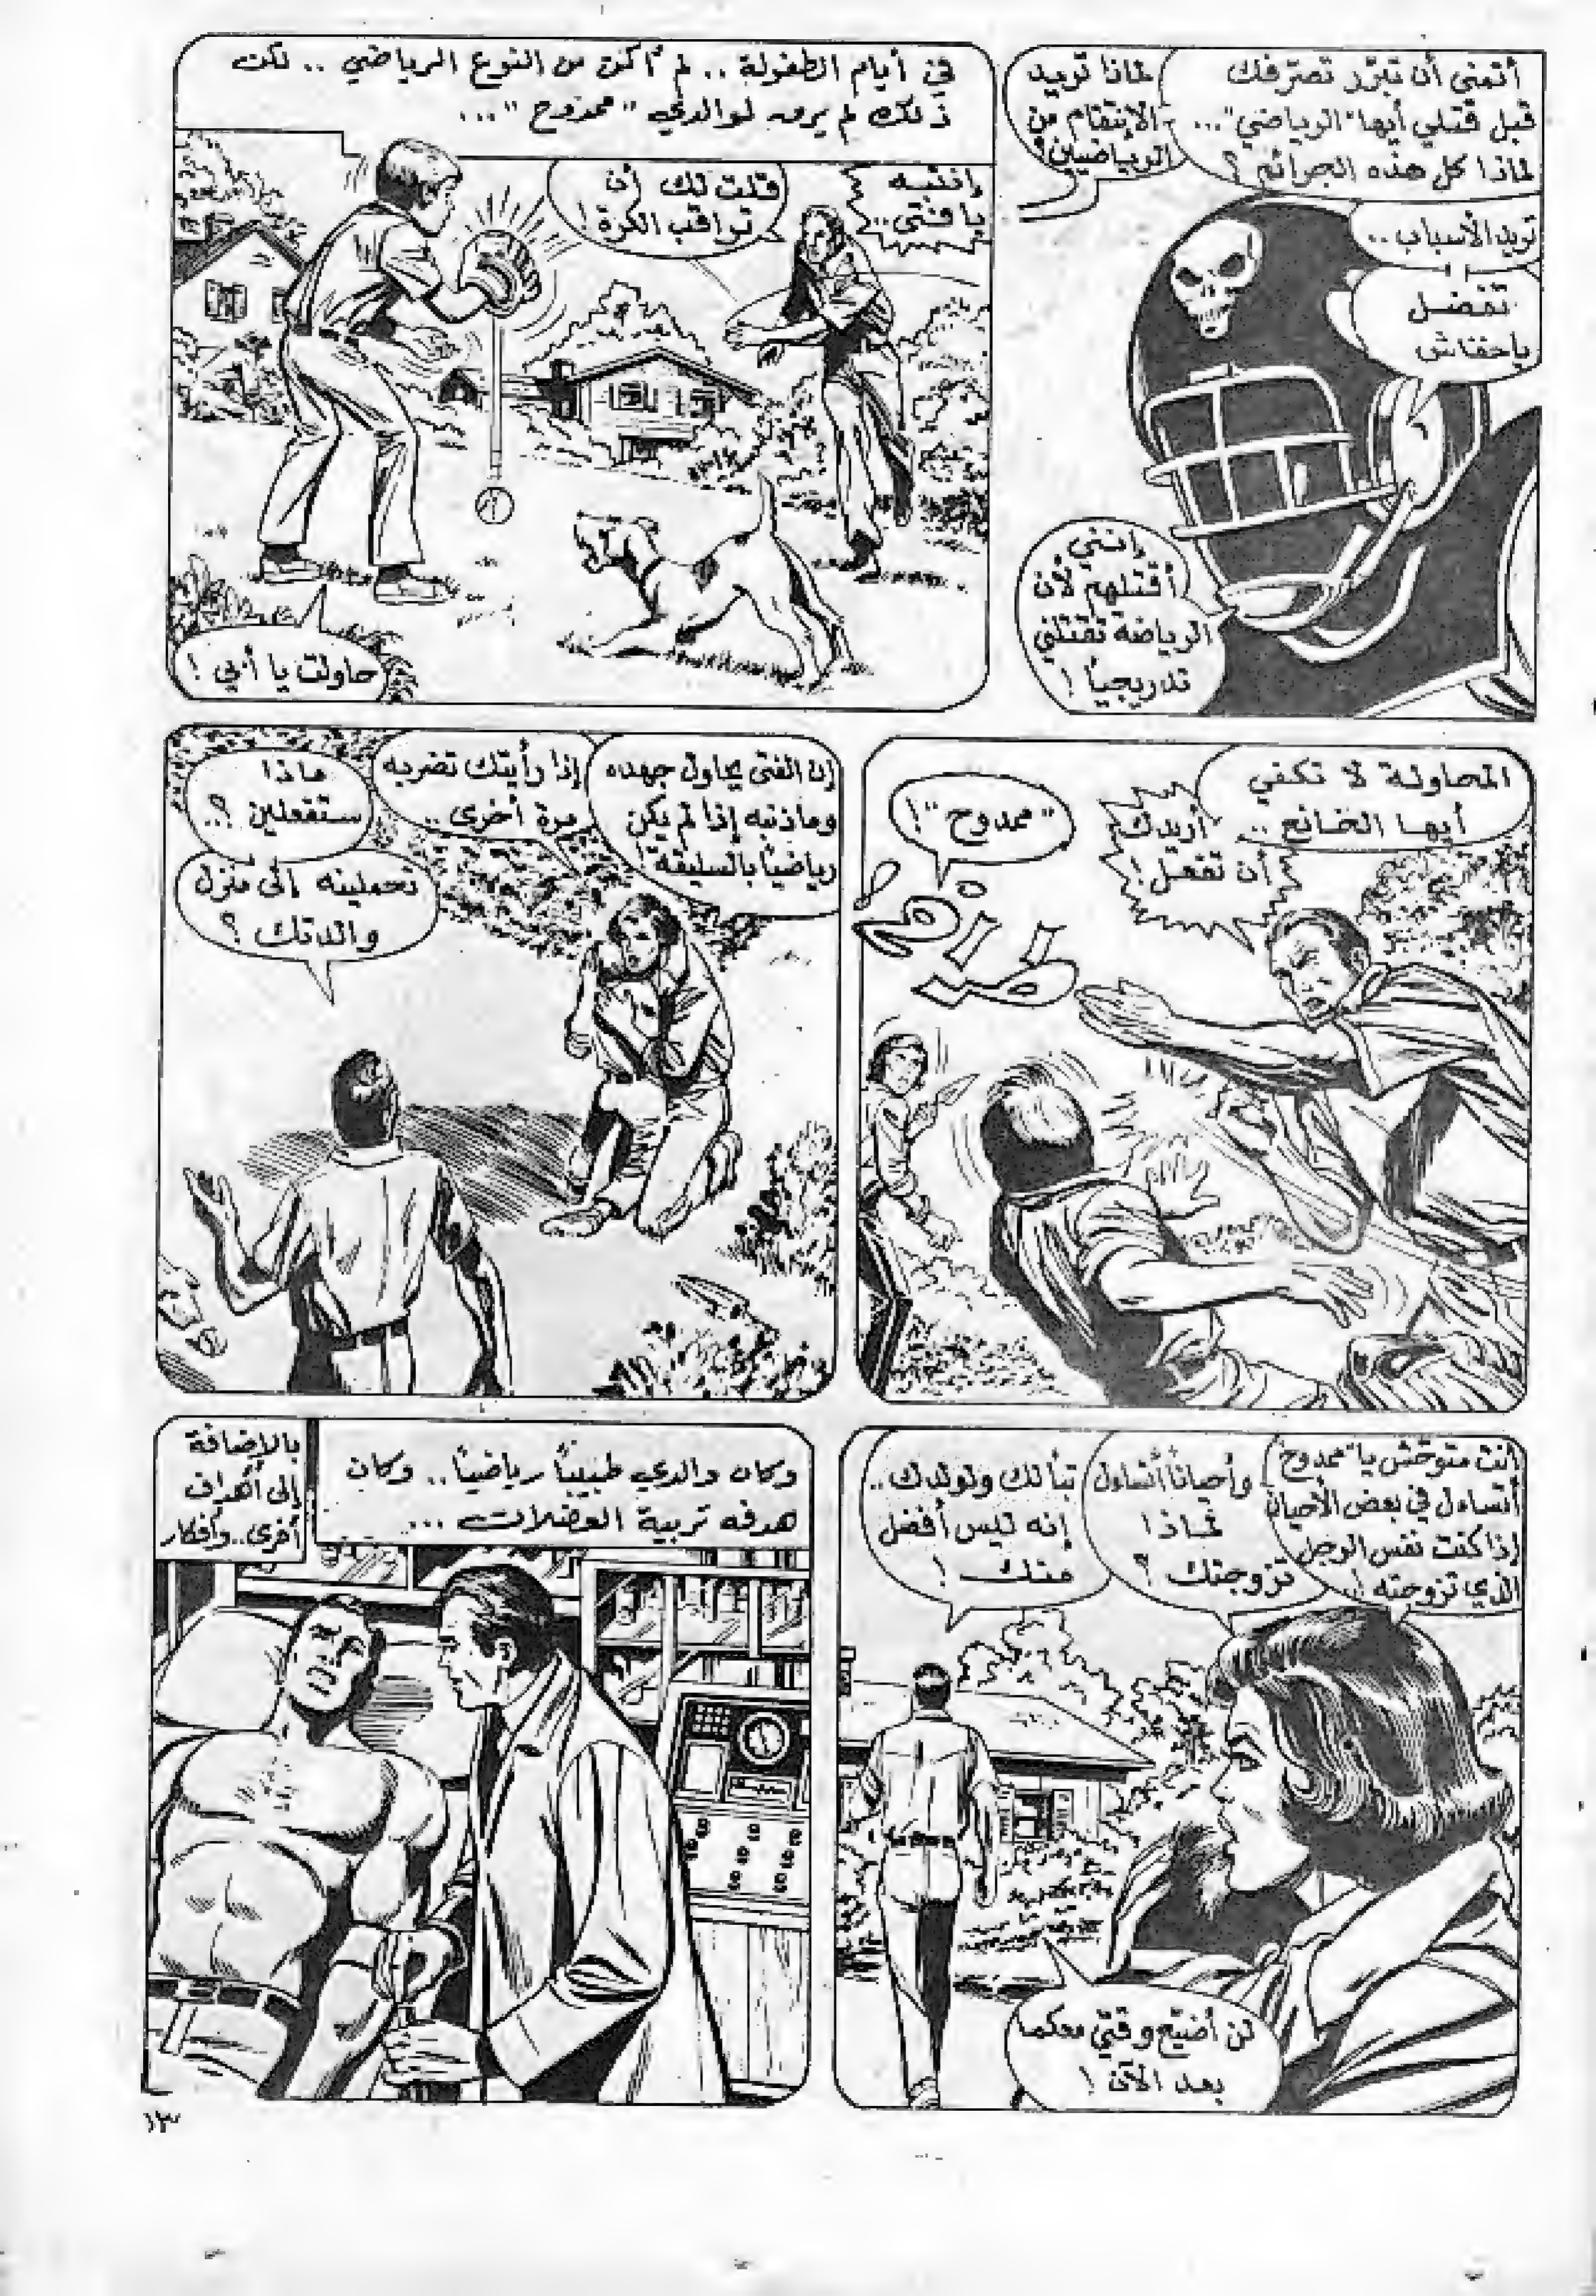 أتمنى أن تبرّر تصرّفك
قبل قتلي أيها "الرياضي"...
لماذا كل هذه الجرائم؟
لماذا تريد
الإنتقام من
الرياضيين؟
تريد الأسباب..
تفضل
يا خفاش
إنني
أقتلهم لأن
الرياضة تقتلني
تدريجياً!
في أيام الطفولة.. لم أكن من النوع الرياضي.. لكن
ذلك لم يرق لوالدي "ممدوح"...
إنتبه
يا فتى..
قلت لك أن
تراقب الكرة!
حاولت يا أبي!
المحاولة لا تكفي
أيها الضائع..
أريدك
أن تفعل!
"ممدوح"!
طراخ!
إن الفتى يحاول جهده
وما ذنبه إذا لم يكن
رياضياً بالسليقة!
إذا رأيتك تضربه
مرة أخرى..
ماذا
ستفعلين؟..
تحملينه إلى منزل
والدتك؟
أنت متوحّش يا "ممدوح"
أتساءل في بعض الأحيان
إذا كنت نفس الرجل
الذي تزوجته!..
وأحياناً أتساءل
لماذا
تزوجتك؟
تباً لك ولولدك..
إنه ليس أفضل
منك!
لن أضيّع وقتي معكما
بعد الآن!
وكان والدي طبيباً رياضياً.. وكان
هدفه تربية العضلات...
بالإضافة
إلى أهداف
أخرى.. وأفكار
١٣